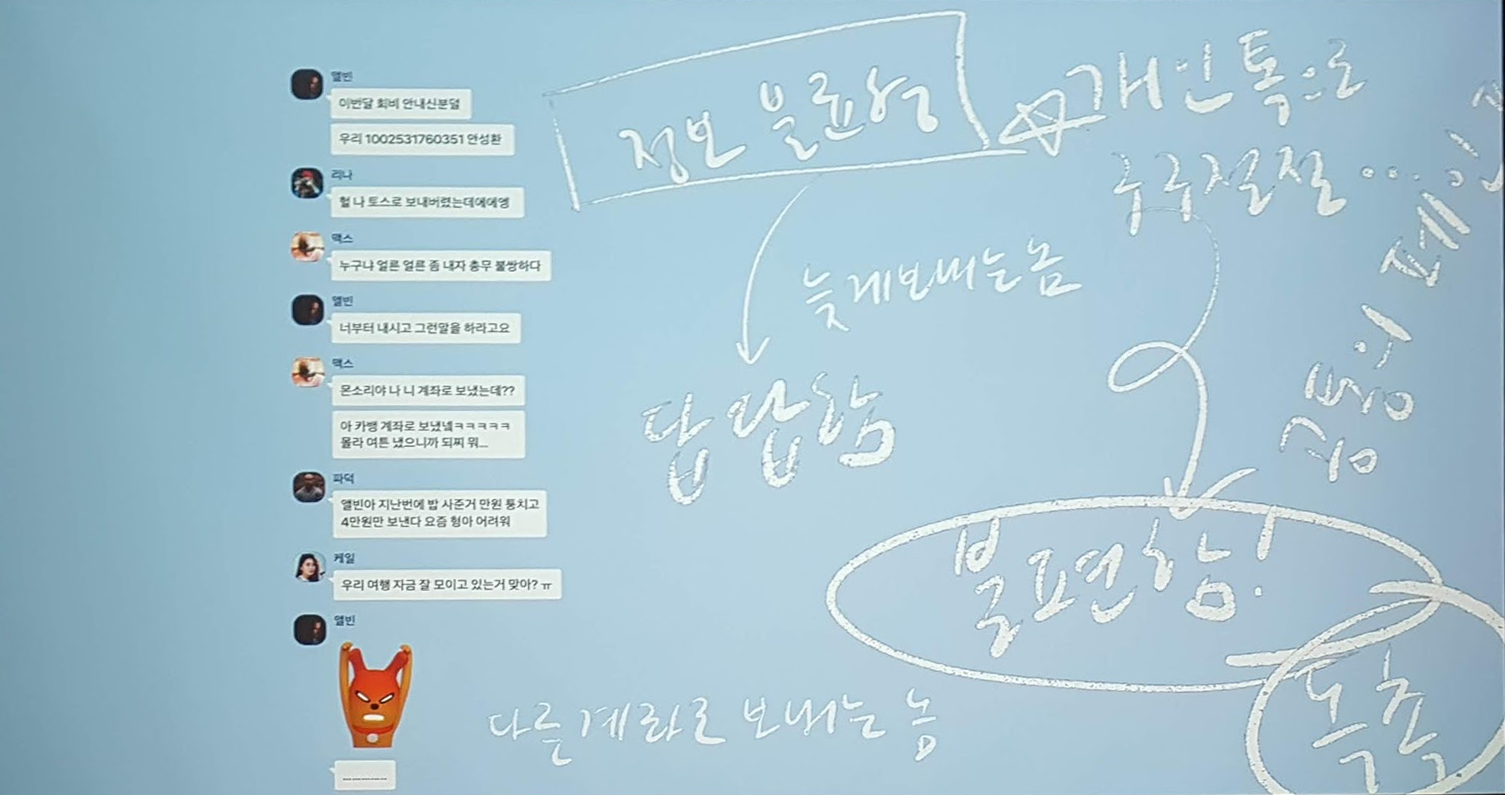 앨빈
이번달 회비 안내신분덜
우리 1002531760351 안성환
리나
헐 나 토스로 보내버렸는데에에엥
맥스
누구냐 얼른 얼른 좀 내자 총무 불쌍하다
앨빈
너부터 내시고 그런말을 하라고요
맥스
몬소리야 나 니 계좌로 보냈는데??
아 카뱅 계좌로 보냈넼ㅋㅋㅋㅋㅋ
몰라 여튼 냈으니까 되찌 뭐...
파덕
앨빈아 지난번에 밥 사준거 만원 퉁치고
4만원만 보낸다 요즘 형아 어려워
케일
우리 여행 자금 잘 모이고 있는거 맞아? ㅠ
앨빈
정보 불균형
개인톡으로
구구절절...
늦게보내는놈
답답함
공통의 페인
불편함!
독촉
다른계좌로 보내는 놈